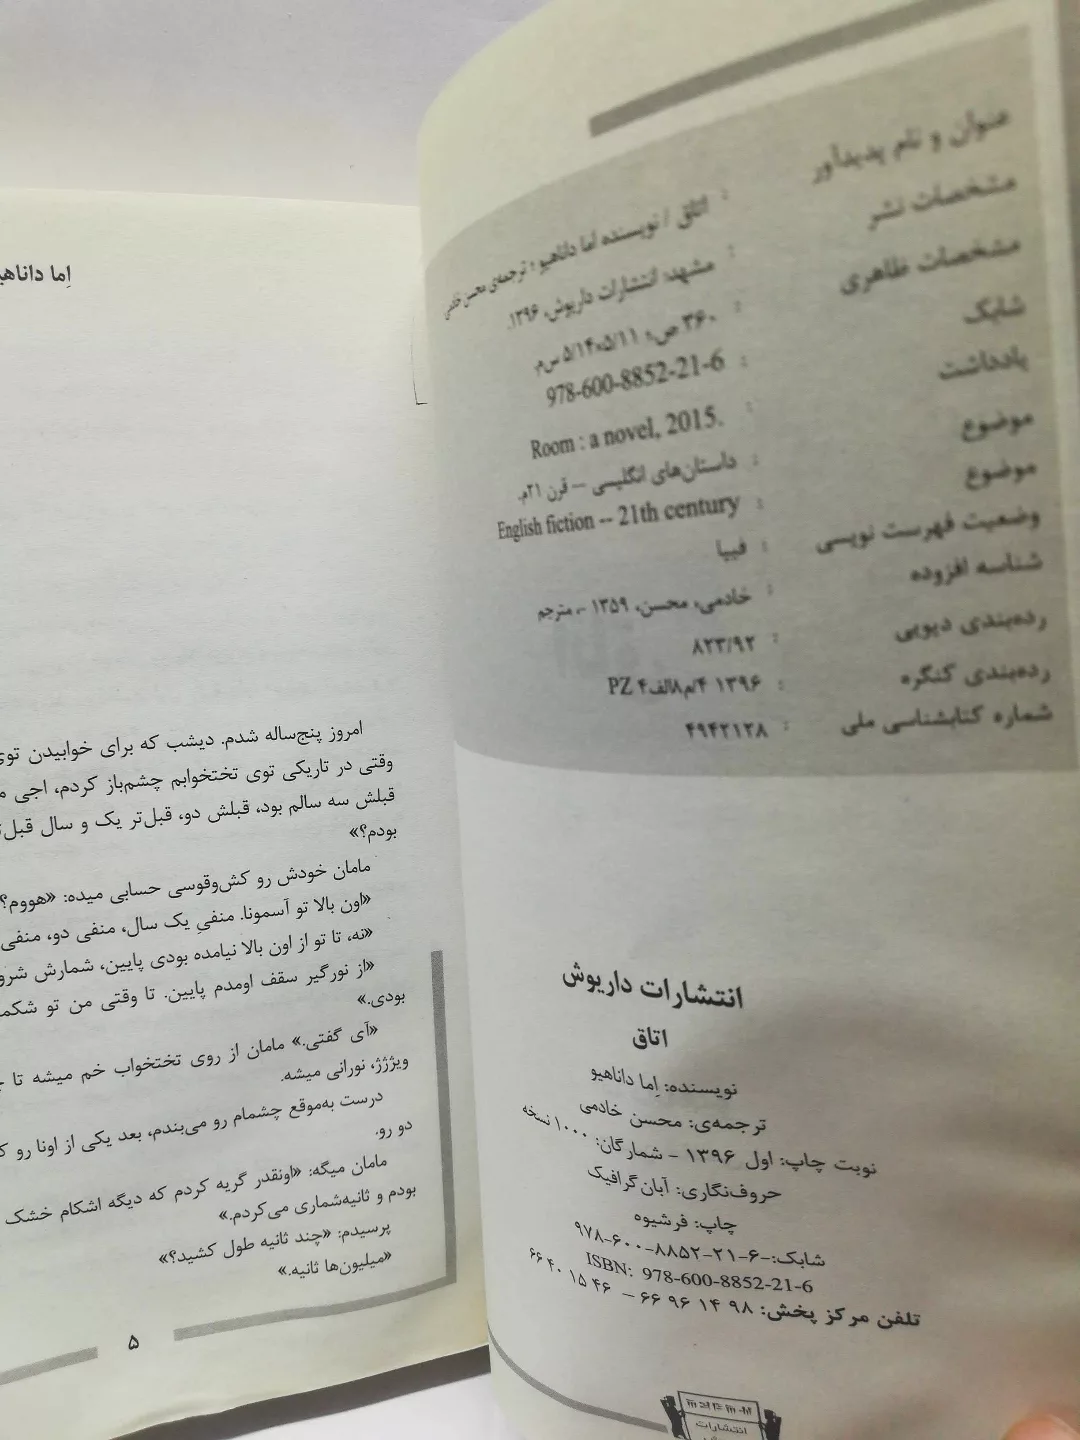 عنوان و نام پدیدآور : اتاق / نویسنده اما داناهیو ؛ ترجمه‌ی محسن خادمی
مشخصات نشر : مشهد: انتشارات داریوش، ۱۳۹۶.
مشخصات ظاهری : ۳۶۰ ص؛ ۵/۱۴×۵/۱۱ س‌م.
شابک : 978-600-8852-21-6
یادداشت : Room : a novel, 2015.
موضوع : داستان‌های انگلیسی -- قرن ۲۱م.
موضوع : English fiction -- 21th century
وضعیت فهرست نویسی : فیپا
شناسه افزوده : خادمی، محسن، ۱۳۵۹ -، مترجم
رده‌بندی دیویی : ۸۲۳/۹۲
رده‌بندی کنگره : PZ ۴‌الف۸م/۴ ۱۳۹۶
شماره کتابشناسی ملی : ۴۹۴۲۱۲۸
انتشارات داریوش
اتاق
نویسنده: اِما داناهیو
ترجمه‌ی: محسن خادمی
نوبت چاپ: اول ۱۳۹۶ - شمارگان: ۱۰۰۰ نسخه
حروف‌نگاری: آبان‌گرافیک
چاپ: فرشیوه
شابک:-۶-۲۱-۸۸۵۲-۶۰۰-۹۷۸
ISBN: 978-600-8852-21-6
تلفن مرکز پخش: ۹۸ ۱۴ ۹۶ ۶۶ – ۴۶ ۱۵ ۴۰ ۶۶
انتشارات
اِما داناهیو
امروز پنج‌ساله شدم. دیشب که برای خوابیدن توی
وقتی در تاریکی توی تختخوابم چشم‌باز کردم، اجی
قبلش سه سالم بود، قبلش دو، قبل‌تر یک و سال
بودم؟»
مامان خودش رو کش‌وقوسی حسابی میده: «هووم؟
«اون بالا تو آسمونا. منفیِ یک سال، منفی دو، منفی
«نه، تا تو از اون بالا نیامده بودی پایین، شمارش
«از نورگیر سقف اومدم پایین. تا وقتی من تو
بودی.»
«آی گفتی.» مامان از روی تختخواب خم میشه تا
ویژژژ، نورانی میشه.
درست به‌موقع چشمام رو می‌بندم، بعد یکی از اونا رو
دو رو.
مامان میگه: «اونقدر گریه کردم که دیگه اشکام خشک
بودم و ثانیه‌شماری می‌کردم.»
پرسیدم: «چند ثانیه طول کشید؟»
«میلیون‌ها ثانیه.»
۵